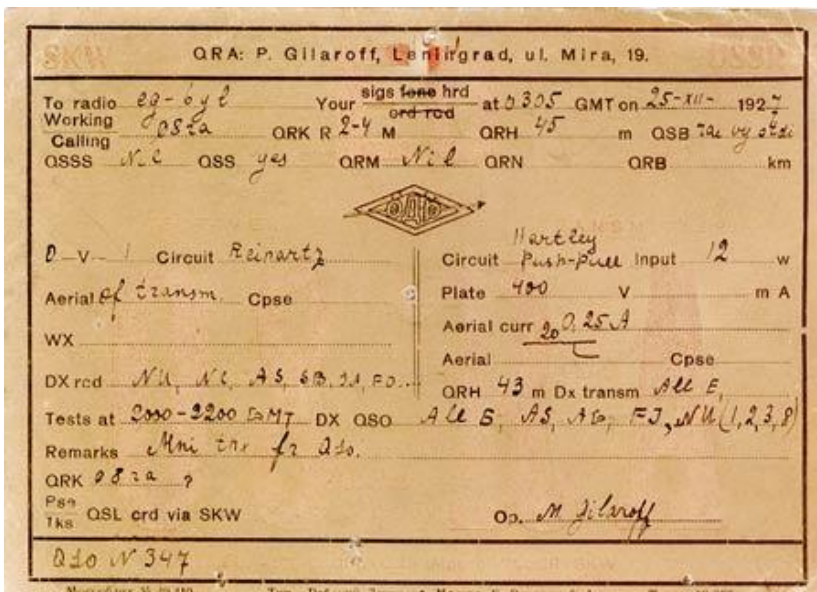 QRA: P. Gilaroff, Leningrad, ul. Mira, 19.
To radio eg-6yl Your sigs fone hrd at 0305 GMT on 25-XII- 1927
ord rcd
Working
Calling 08za QRK R 2-4 M QRH 45 m QSB rac vy stdi
QSSS Nil QSS yes QRM Nil QRN QRB km
0-V-1 Circuit Reinartz
Aerial of transm. Cpse
WX
DX rcd NU, NC, AS, SB,
Hartley
Circuit Push-Pull Input 12 w
Plate 400 V m A
Aerial curr 0,25 A
Aerial Cpse
QRH 43 m Dx transm All E,
Tests at 2000-2200 GMT DX QSO All E, AS, FJ, NU (1,2,3,8)
Remarks Mni tnx fr Qso.
QRK 08za ?
Pse
Tks QSL crd via SKW Op. M. Gilaroff
QSO N 347